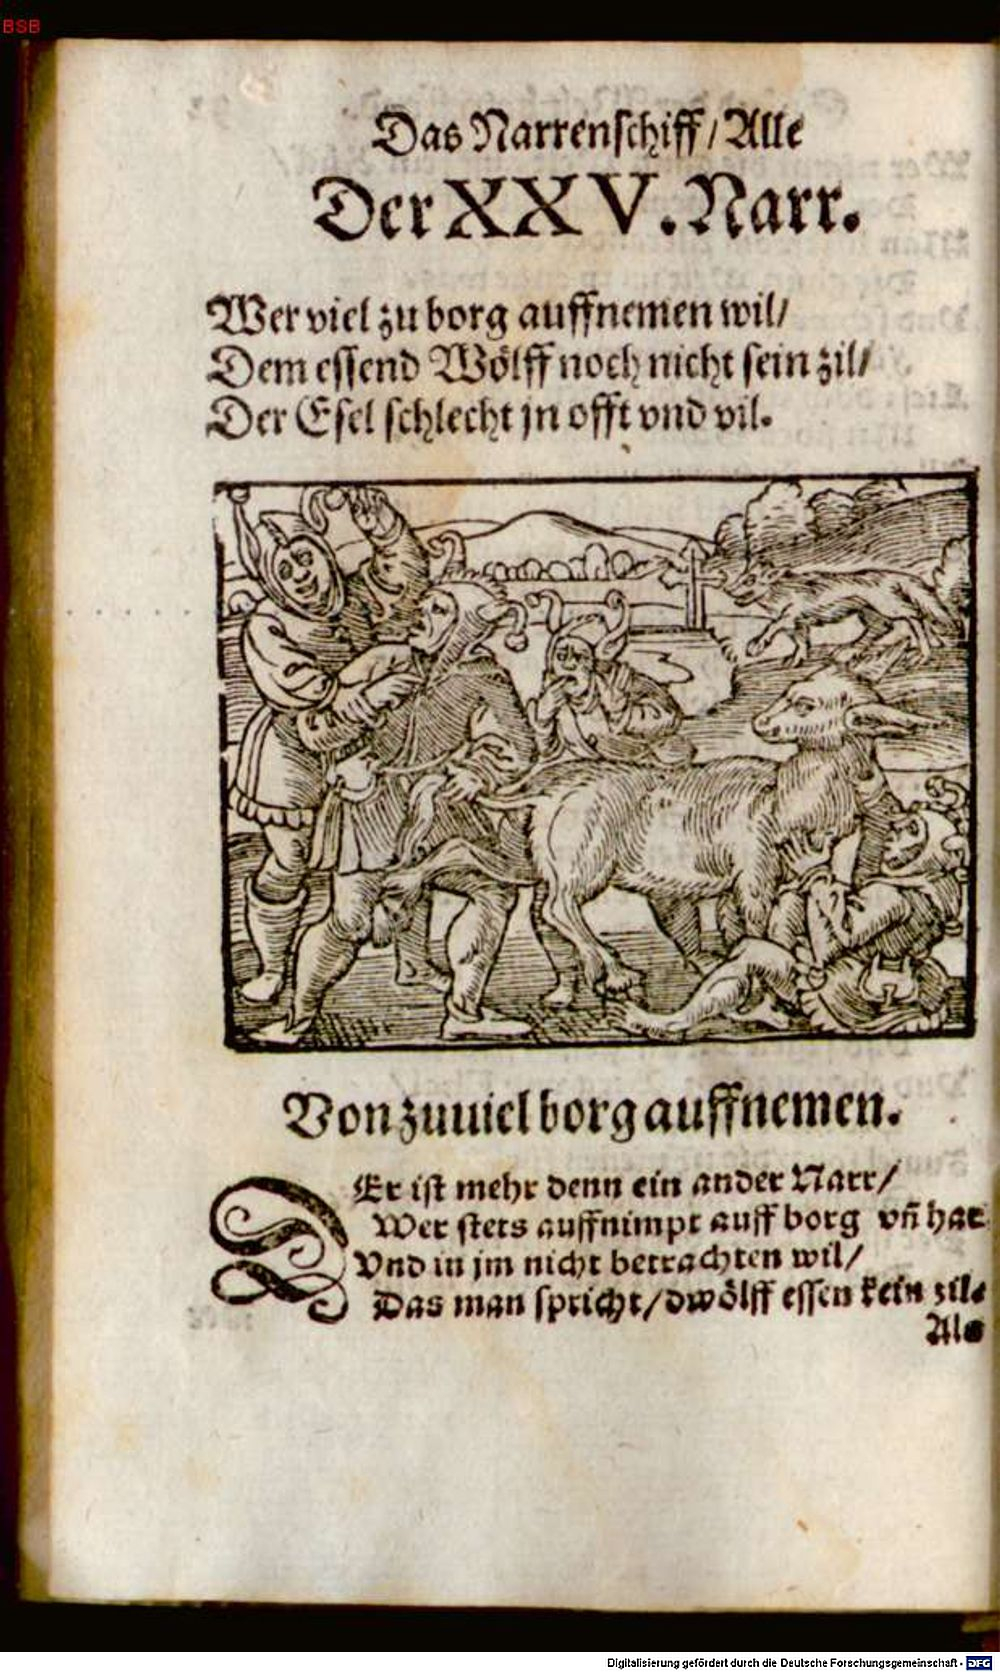 BSB
Das Narrenschiff / Alle
Der XXV. Narr.
Wer viel zu borg auffnemen wil /
Dem essend Wölff noch nicht sein zil /
Der Esel schlecht jn offt vnd vil.
Von zuuiel borg auffnemen.
DEr ist mehr denn ein ander Narr /
Wer stets auffnimpt auff borg vñ har
Vnd in jm nicht betrachten wil /
Das man spricht / dwölff essen kein zil.
Als
Digitalisierung gefördert durch die Deutsche Forschungsgemeinschaft - DFG